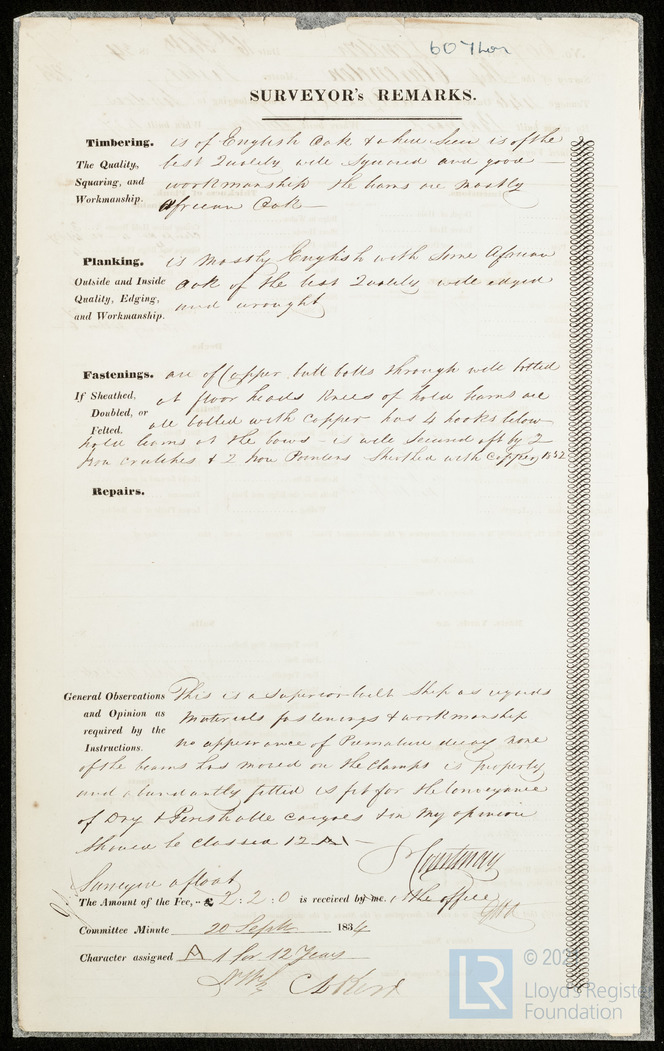 607 Lon
SURVEYOR's REMARKS.
Timbering. is of English Oak & where seen is of the
The Quality, best Quality well squared and good
Squaring, and workmanship the beams are mostly
Workmanship. African Oak
Planking. is mostly English with some African
Outside and Inside Oak of the best Quality well edged
Quality, Edging, and wrought
and Workmanship.
Fastenings. are of Copper butt bolts through well bolted
If Sheathed, at floor heads Knees of hold beams are
Doubled, or all bolted with Copper has 4 hooks below
Felted. hold beams at the bows - is well secured aft by 2
Iron crutches & 2 Iron Pointers Sheathed with Copper 1832
Repairs.
General Observations This is a superior built Ship as regards
and Opinion as Materials fastenings & workmanship
required by the no appearance of Premature decay none
Instructions. of the beams has moved on the Clamps is properly
and abundantly fitted is fit for the Conveyance
of Dry & Perishable cargoes & in My opinion
should be Classed 12 A1 -
Courtenay
Surveyed afloat
The Amount of the Fee, - £ 2 : 2 : 0 is received by me, at the office
Committee Minute 20 Septr 1834
Character assigned A 1 for 12 Years
LR
© 202
Lloyd's Registe
Foundation